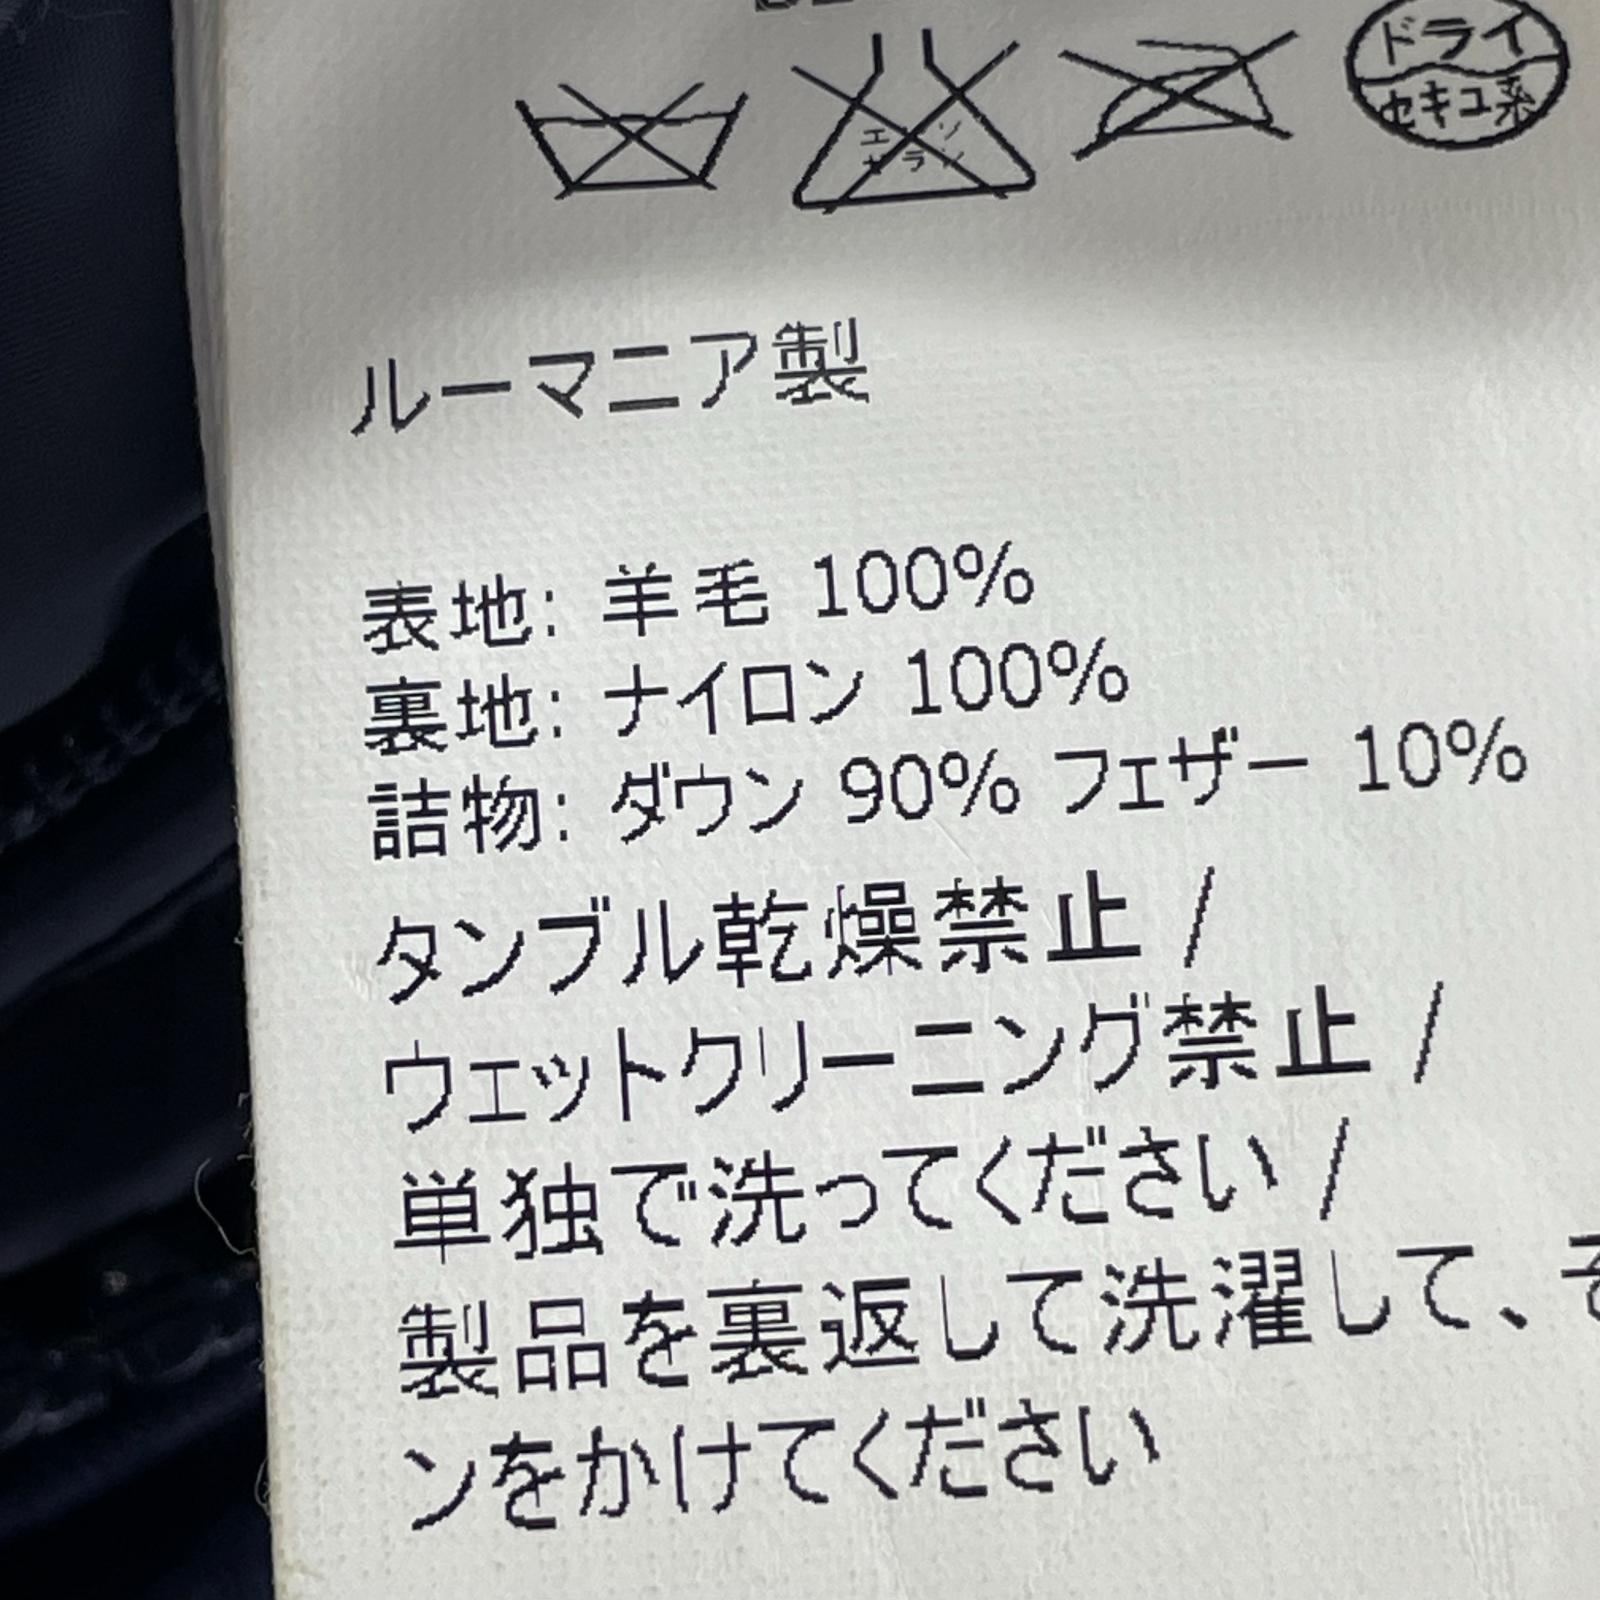 エンソ
サラシ
ドライ
セキユ系
ルーマニア製
表地: 羊毛 100%
裏地: ナイロン 100%
詰物: ダウン 90% フェザー 10%
タンブル乾燥禁止 /
ウェットクリーニング禁止 /
単独で洗ってください /
製品を裏返して洗濯して、
ンをかけてください